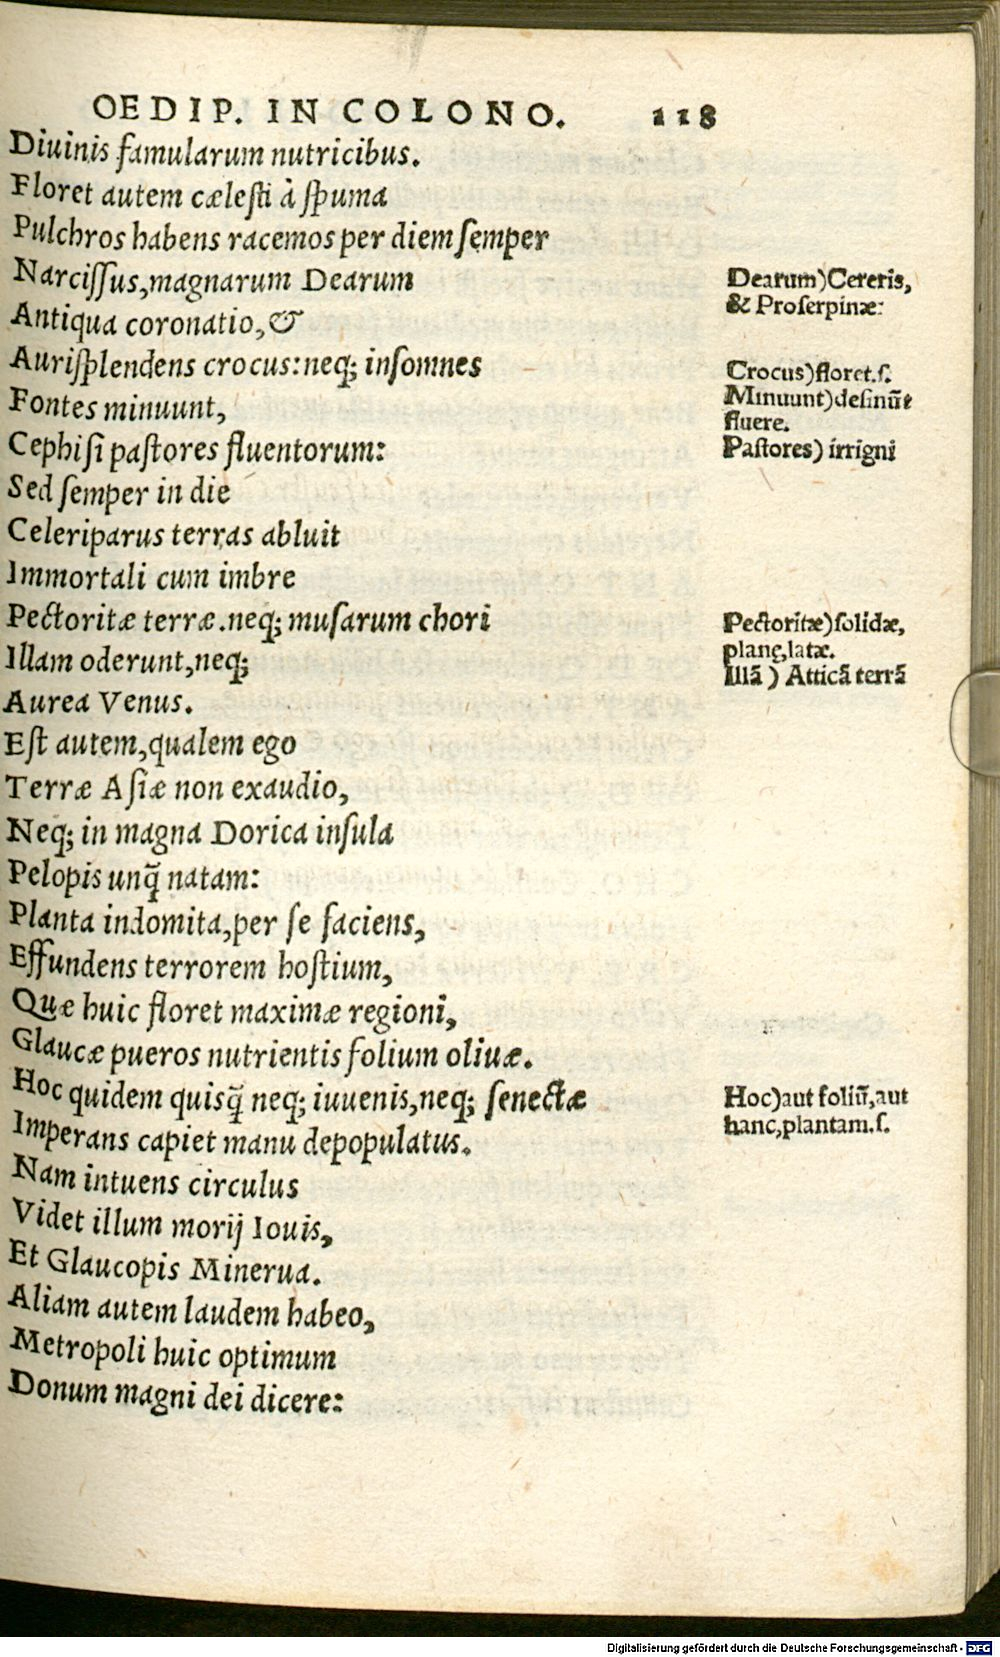 OEDIP. IN COLONO. 118
Diuinis famularum nutricibus.
Floret autem cælesti à spuma
Pulchros habens racemos per diem semper
Narcissus, magnarum Dearum
Antiqua coronatio, &
Aurisplendens crocus: neq; insomnes
Fontes minuunt,
Cephisi pastores fluentorum:
Sed semper in die
Celeriparus terras abluit
Immortali cum imbre
Pectoritæ terræ. neq; musarum chori
Illam oderunt, neq;
Aurea Venus.
Est autem, qualem ego
Terræ Asiæ non exaudio,
Neq; in magna Dorica insula
Pelopis unq̃ natam:
Planta indomita, per se faciens,
Effundens terrorem hostium,
Quæ huic floret maximæ regioni,
Glaucæ pueros nutrientis folium oliuæ.
Hoc quidem quisq̃ neq; iuuenis, neq; senectæ
Imperans capiet manu depopulatus.
Nam intuens circulus
Videt illum morij Iouis,
Et Glaucopis Minerua.
Aliam autem laudem habeo,
Metropoli huic optimum
Donum magni dei dicere:
Dearum) Cereris,
& Proserpinæ:
Crocus) floret. s.
Minuunt) desinũt
fluere.
Pastores) irrigni
Pectoritæ) solidæ,
planę, latæ.
Illã) Atticã terrã
Hoc) aut foliũ, aut
hanc, plantam. s.
Digitalisierung gefördert durch die Deutsche Forschungsgemeinschaft - DFG